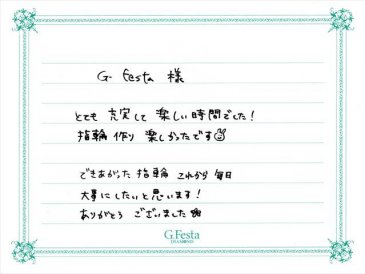 G. Festa 様
とても 充実して 楽しい時間でした!
指輪 作り 楽しかったです
できあがった 指輪 これから 毎日
大事にしたいと思います!
ありがとう ございました
G.Festa
DIAMOND